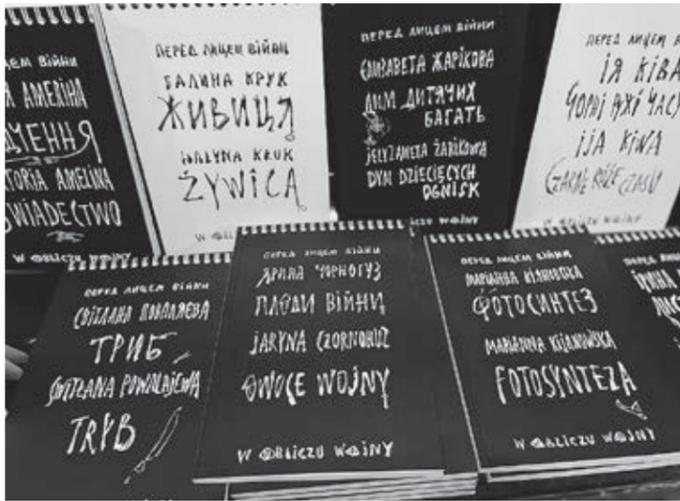 ЛИЦЕМ ВІЙНИ
АМЕЛІНА
AMELINA
ŚWIADECTWO
W OBLICZU WOJNY
ПЕРЕД ЛИЦЕМ ВІЙНИ
ГАЛИНА КРУК
ЖИВИЦЯ
HALYNA KRUK
ŻYWICA
W OBLICZU WOJNY
ПЕРЕД ЛИЦЕМ ВІЙНИ
ЄЛИЗАВЕТА ЖАРІКОВА
ДИМ ДИТЯЧИХ
БАГАТЬ
JELYZAWETA ŻARIKOWA
DYM DZIECIĘCYCH
OGNISK
W OBLICZU WOJNY
ПЕРЕД ЛИЦЕМ
ІЯ КІВА
ЧОРНІ РОЖІ ЧАСУ
IJA KIWA
CZARNE RÓŻE CZASU
W OBLICZU WOJNY
ПЕРЕД ЛИЦЕМ ВІЙНИ
СВІТЛАНА ПОВАЛЯЄВА
ТРИБ
SWITŁANA POWALAJEWA
TRYB
ПЕРЕД ЛИЦЕМ ВІЙНИ
ЯРИНА ЧОРНОГУЗ
ПЛОДИ ВІЙНИ
JARYNA CZORNOHUZ
OWOCE WOJNY
W OBLICZU WOJNY
ПЕРЕД ЛИЦЕМ ВІЙНИ
МАРІАННА КІЯНОВСЬКА
ФОТОСИНТЕЗ
MARIANNA KIJANOWSKA
FOTOSYNTEZA
W OBLICZU WOJNY
ПЕРЕД ЛИЦЕМ
ІРИНА